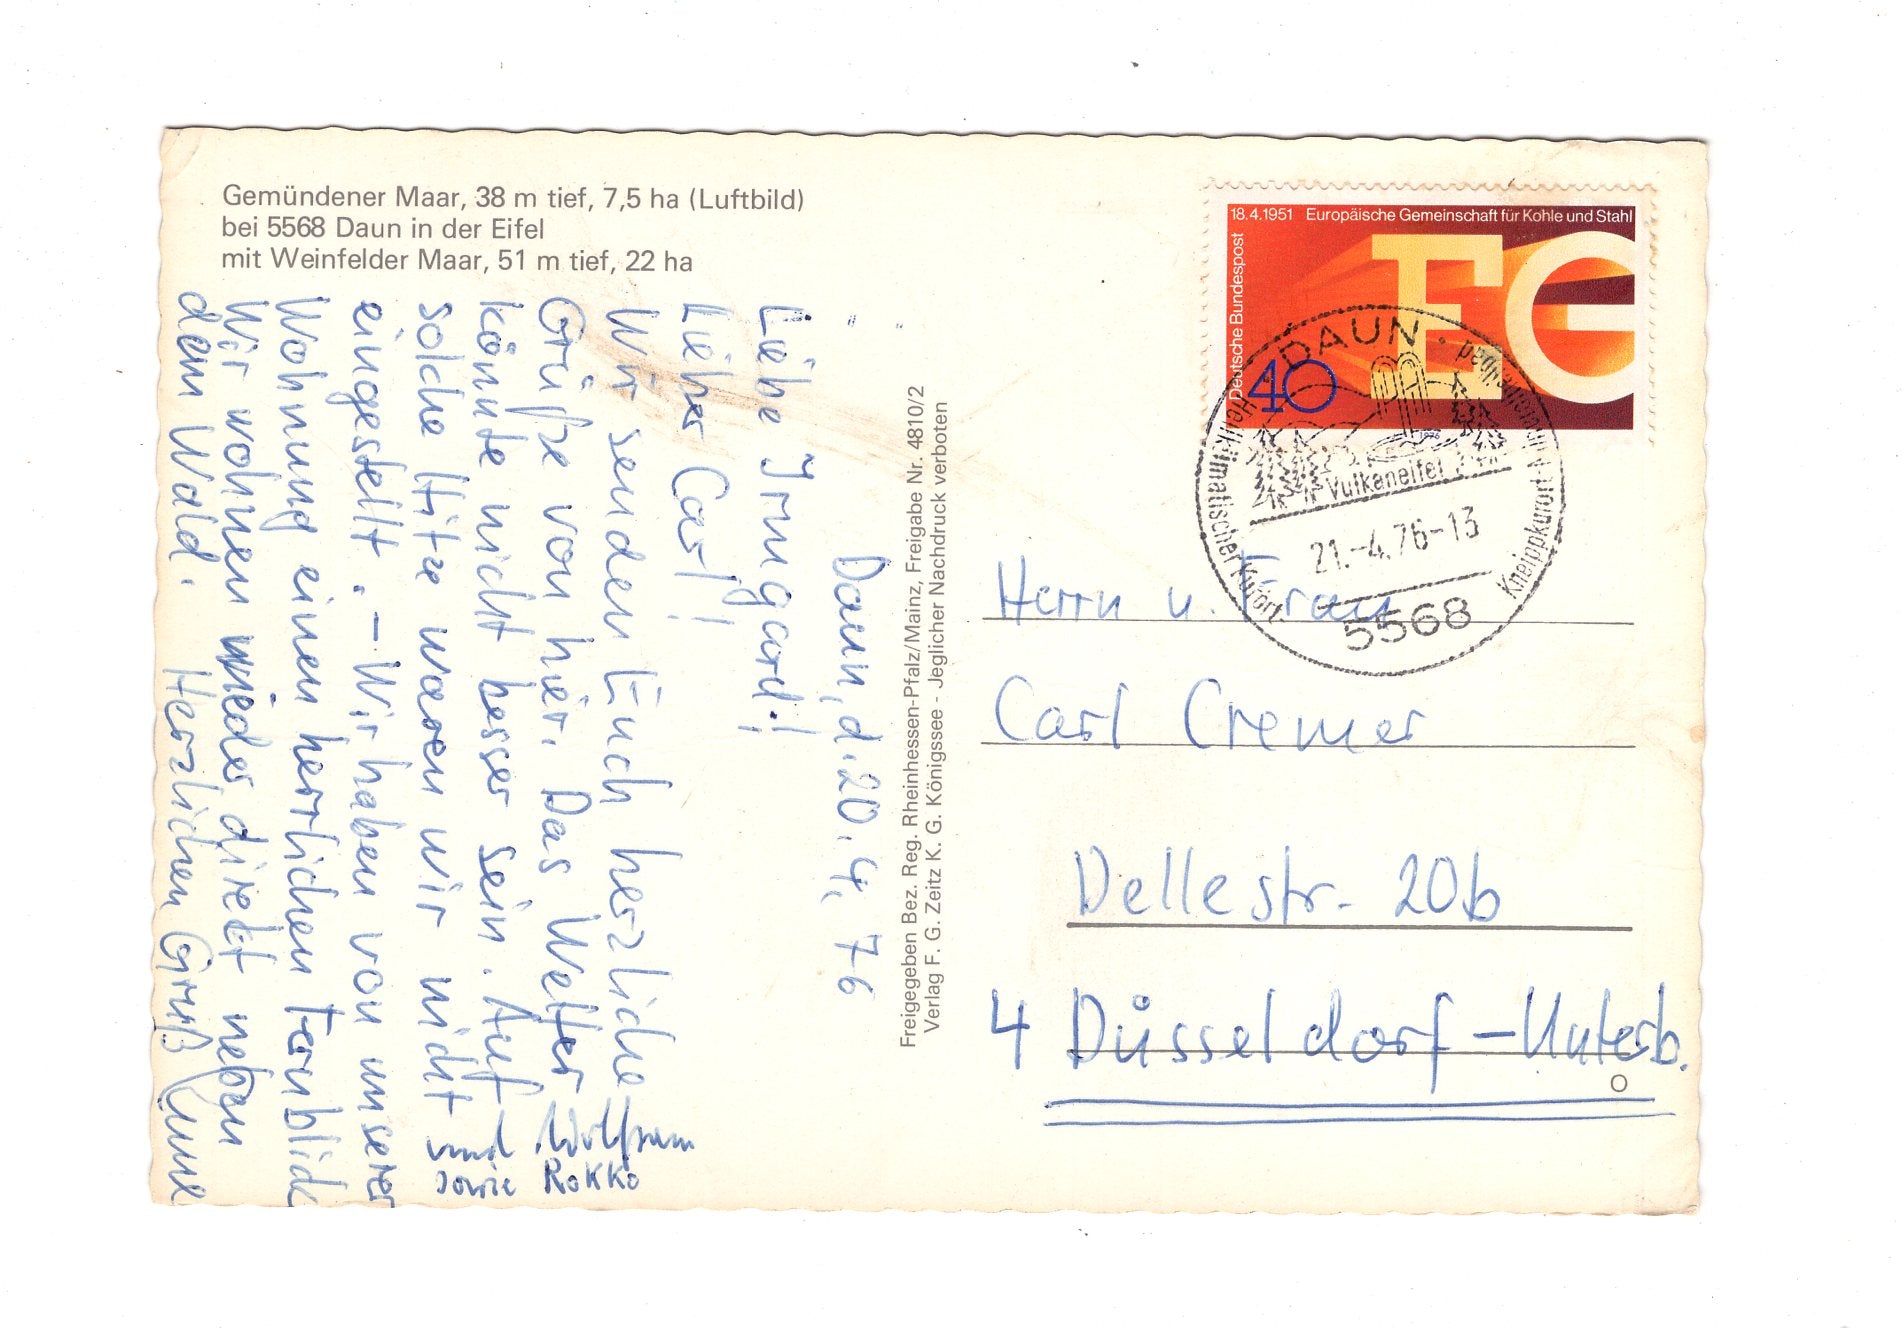 Gemündener Maar, 38 m tief, 7,5 ha (Luftbild)
bei 5568 Daun in der Eifel
mit Weinfelder Maar, 51 m tief, 22 ha
Daun, d. 20. 4. 76
Liebe Irmgard!
Lieber Carl!
Wir senden Euch herzliche
Grüße von hier. Das Wetter
könnte nicht besser sein. Auf
solche Hitze waren wir nicht
eingestellt. – Wir haben von unserer
Wohnung einen herrlichen Fernblick
Wir wohnen wieder direkt neben
dem Wald. Herzlichen Gruß
und Wolfram
sowie Rokko
Freigegeben Bez. Reg. Rheinhessen-Pfalz/Mainz, Freigabe Nr. 4810/2
Verlag F. G. Zeitz K. G. Königssee - Jeglicher Nachdruck verboten
18.4.1951 Europäische Gemeinschaft für Kohle und Stahl
Deutsche Bundespost
EG
40
1976
DAUN
Heilklimatischer Kurort
Kneippkurort u. Mineralheilbad
Vulkaneifel
21.-4.76-13
5568
Herrn u. Frau
Carl Cremer
Dellestr. 20b
4 Düsseldorf-Unterb.